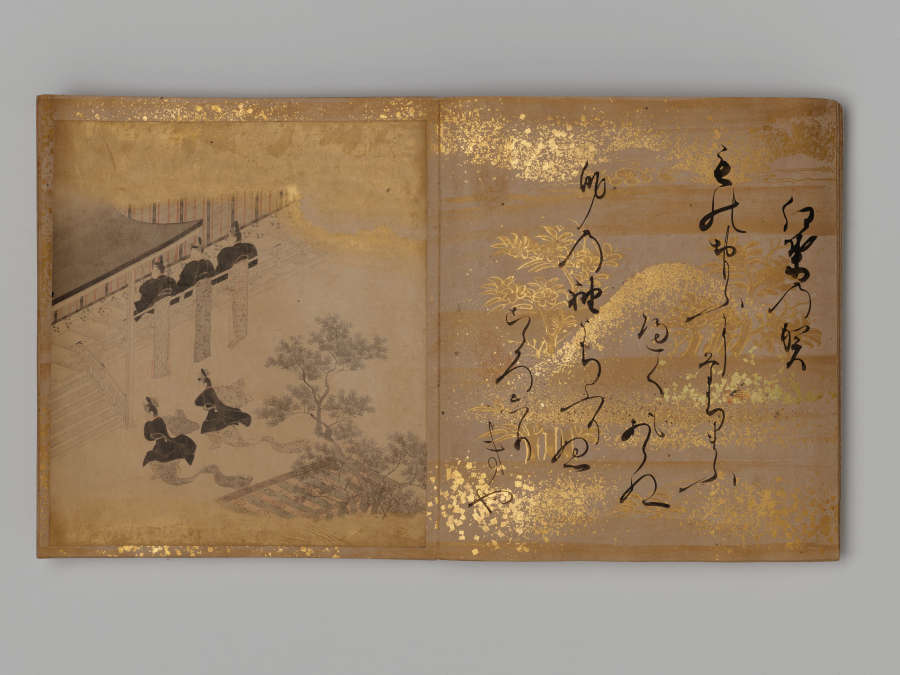 紅葉乃賀
ものおもふにたちまふ
へくもあらぬ
身乃袖うちふりし
こゝろしり
きや